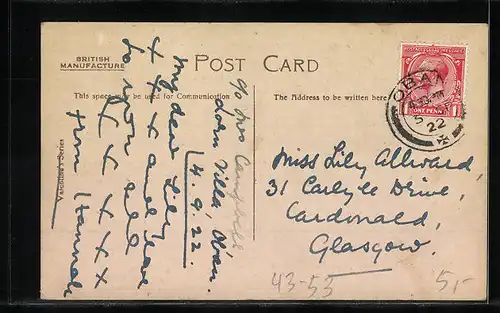 BRITISH
MANUFACTURE
POST CARD
This space may be used for Communication.
The Address to be written here
Valentine's Series
c/o Mrs Campbell
Dorn Villa, Oban.
4.9.22.
My dear Lily
x x x and love
to you all
x x x x x
from Hannah
OBAN
5
22
ONE PENNY
Miss Lily Allward,
31 Carlyle Drive,
Cardonald,
Glasgow.
43-53
5,-